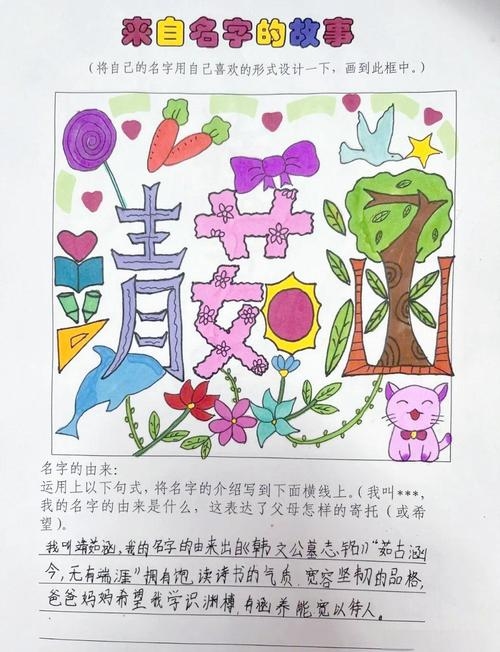 来自名字的故事
(将自己的名字用自己喜欢的形式设计一下，画到此框中。)
青茹函
名字的由来:
运用上以下句式，将名字的介绍写到下面横线上。(我叫***，
我的名字的由来是什么，这表达了父母怎样的寄托（或希
望）。
我叫靖茹涵，我的名字的由来出自《韩文公墓志铭》“茹古涵
今，无有端涯”拥有饱读诗书的气质 宽容坚韧的品格，
爸爸妈妈希望我学识渊博，有涵养能宽以待人。